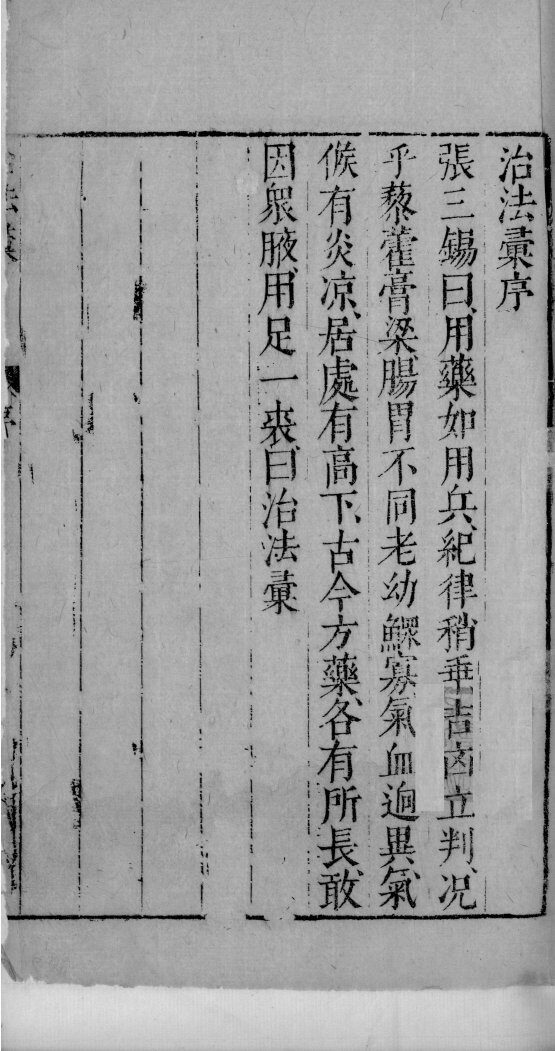 治法彙序
張三錫曰用藥如用兵、紀律稍乖吉凶立判、况
乎藜藿膏粱腸胃不同老幼鰥寡氣血逈異、氣
候有炎凉、居處有高下、古今方藥、各有所長、敢
因衆腋、用足一裘、曰治法彙
法彙
序